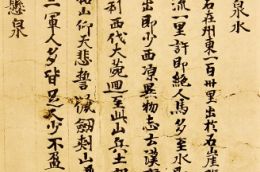 泉水
右在州東一百卅里出於石崖腹
流一里許即絕人馬多至水即
出即少西涼異物志云漢
利西伐大宛迴至此山兵士
拓山仰天悲誓以佩劍刺山
三軍人多皆足人少不盈
懸泉